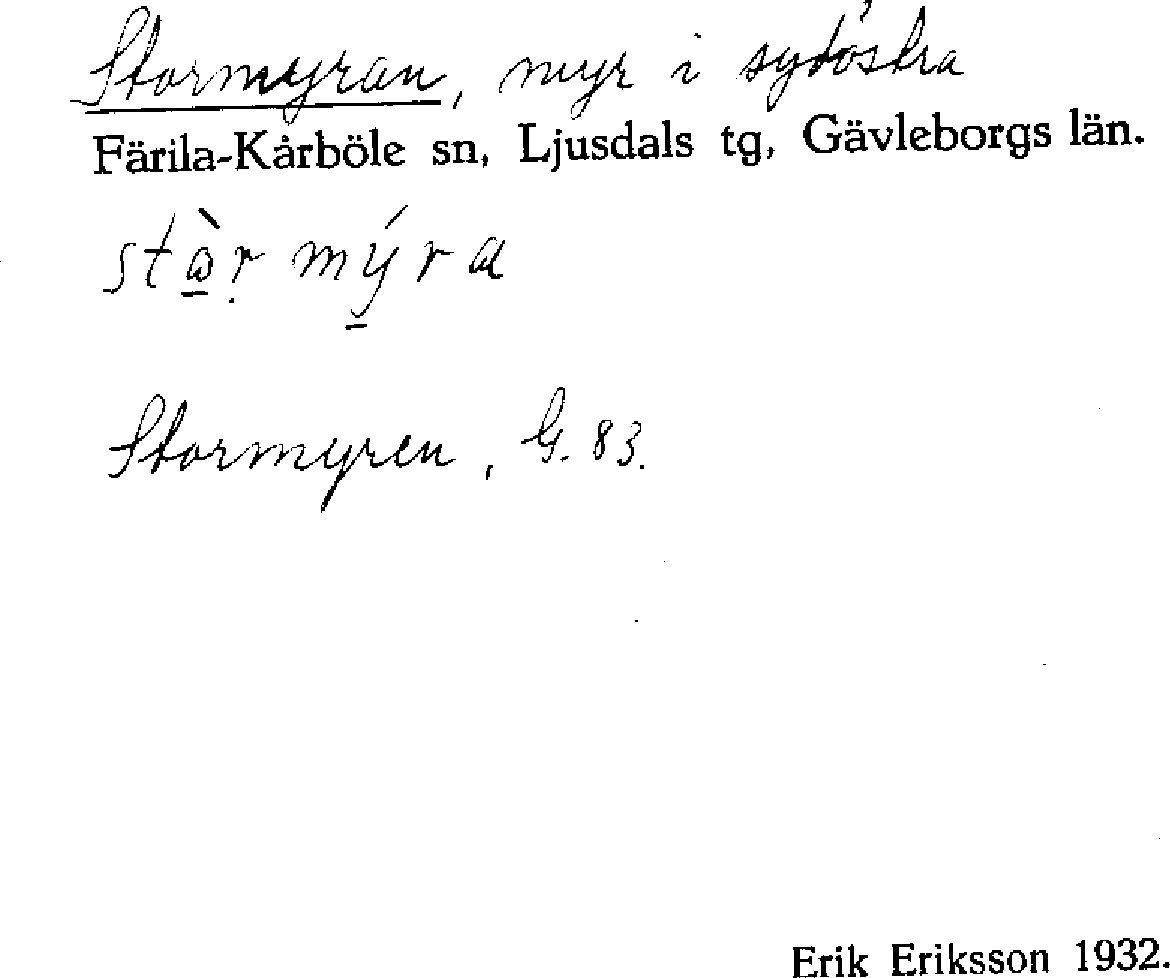 Stormyran, myr i sydöstra
Färila-Kårböle sn, Ljusdals tg, Gävleborgs län.
stὼ̱ṛ mý̱ra
Stormyren, G. 83.
Erik Eriksson 1932.